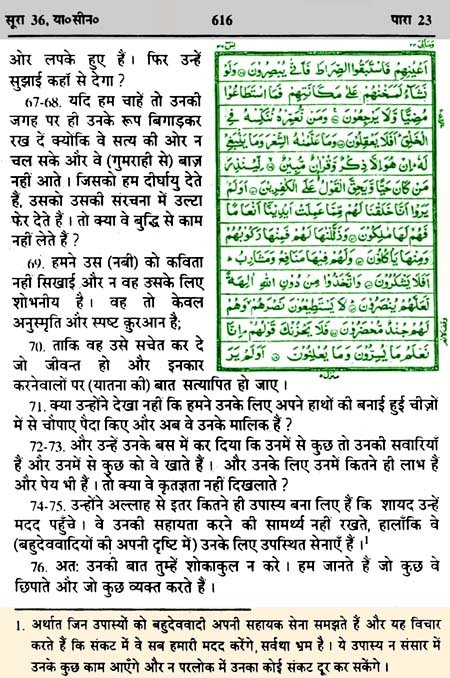 सूरा 36, या०सीन०
616
पारा 23
ओर लपके हुए हैं । फिर उन्हें
सुझाई कहाँ से देगा ?
67-68. यदि हम चाहें तो उनकी
जगह पर ही उनके रूप बिगाड़कर
रख दें क्योंकि वे सत्य की ओर न
चल सके और वे (गुमराही से) बाज़
नहीं आते । जिसको हम दीर्घायु देते
हैं, उसको उसकी संरचना में उल्टा
फेर देते हैं । तो क्या वे बुद्धि से काम
नहीं लेते हैं ?
69. हमने उस (नबी) को कविता
नहीं सिखाई और न वह उसके लिए
शोभनीय है । वह तो केवल
अनुस्मृति और स्पष्ट क़ुरआन है;
70. ताकि वह उसे सचेत कर दे
जो जीवन्त हो और इनकार
करनेवालों पर (यातना की) बात सत्यापित हो जाए ।
اَعْيُنِهِمْ فَاسْتَبَقُوا الصِّرَاطَ فَاَنّٰى يُبْصِرُوْنَ۝ وَلَوْ
نَشَآءُ لَمَسَخْنٰهُمْ عَلٰى مَكَانَتِهِمْ فَمَا اسْتَطَاعُوْا
مُضِيًّا وَّلَا يَرْجِعُوْنَ۝ وَمَنْ نُّعَمِّرْهُ نُنَكِّسْهُ فِي
الْخَلْقِ اَفَلَا يَعْقِلُوْنَ۝ وَمَا عَلَّمْنٰهُ الشِّعْرَ وَمَا يَنْۢبَغِيْ
لَهٗ اِنْ هُوَ اِلَّا ذِكْرٌ وَّقُرْاٰنٌ مُّبِيْنٌ۝ لِّيُنْذِرَ
مَنْ كَانَ حَيًّا وَّيَحِقَّ الْقَوْلُ عَلَى الْكٰفِرِيْنَ۝ اَوَلَمْ
يَرَوْا اَنَّا خَلَقْنَا لَهُمْ مِّمَّا عَمِلَتْ اَيْدِيْنَآ اَنْعَامًا
فَهُمْ لَهَا مٰلِكُوْنَ۝ وَذَلَّلْنٰهَا لَهُمْ فَمِنْهَا رَكُوْبُهُمْ
وَمِنْهَا يَاْكُلُوْنَ۝ وَلَهُمْ فِيْهَا مَنَافِعُ وَمَشَارِبُ
اَفَلَا يَشْكُرُوْنَ۝ وَاتَّخَذُوْا مِنْ دُوْنِ اللّٰهِ اٰلِهَةً
لَّعَلَّهُمْ يُنْصَرُوْنَ۝ لَا يَسْتَطِيْعُوْنَ نَصْرَهُمْ وَهُمْ
لَهُمْ جُنْدٌ مُّحْضَرُوْنَ۝ فَلَا يَحْزُنْكَ قَوْلُهُمْ اِنَّا
نَعْلَمُ مَا يُسِرُّوْنَ وَمَا يُعْلِنُوْنَ۝ اَوَلَمْ يَرَ
71. क्या उन्होंने देखा नहीं कि हमने उनके लिए अपने हाथों की बनाई हुई चीज़ों
में से चौपाए पैदा किए और अब वे उनके मालिक हैं ?
72-73. और उन्हें उनके बस में कर दिया कि उनमें से कुछ तो उनकी सवारियाँ
हैं और उनमें से कुछ को वे खाते हैं । और उनके लिए उनमें कितने ही लाभ हैं
और पेय भी हैं । तो क्या वे कृतज्ञता नहीं दिखलाते ?
74-75. उन्होंने अल्लाह से इतर कितने ही उपास्य बना लिए हैं कि शायद उन्हें
मदद पहुँचे । वे उनकी सहायता करने की सामर्थ्य नहीं रखते, हालाँकि वे
(बहुदेववादियों की अपनी दृष्टि में) उनके लिए उपस्थित सेनाएँ हैं ।1
76. अतः उनकी बात तुम्हें शोकाकुल न करे । हम जानते हैं जो कुछ वे
छिपाते और जो कुछ व्यक्त करते हैं ।
1. अर्थात जिन उपास्यों को बहुदेववादी अपनी सहायक सेना समझते हैं और यह विचार
करते हैं कि संकट में वे सब हमारी मदद करेंगे, सर्वथा भ्रम है । ये उपास्य न संसार में
उनके कुछ काम आएँगे और न परलोक में उनका कोई संकट दूर कर सकेंगे ।